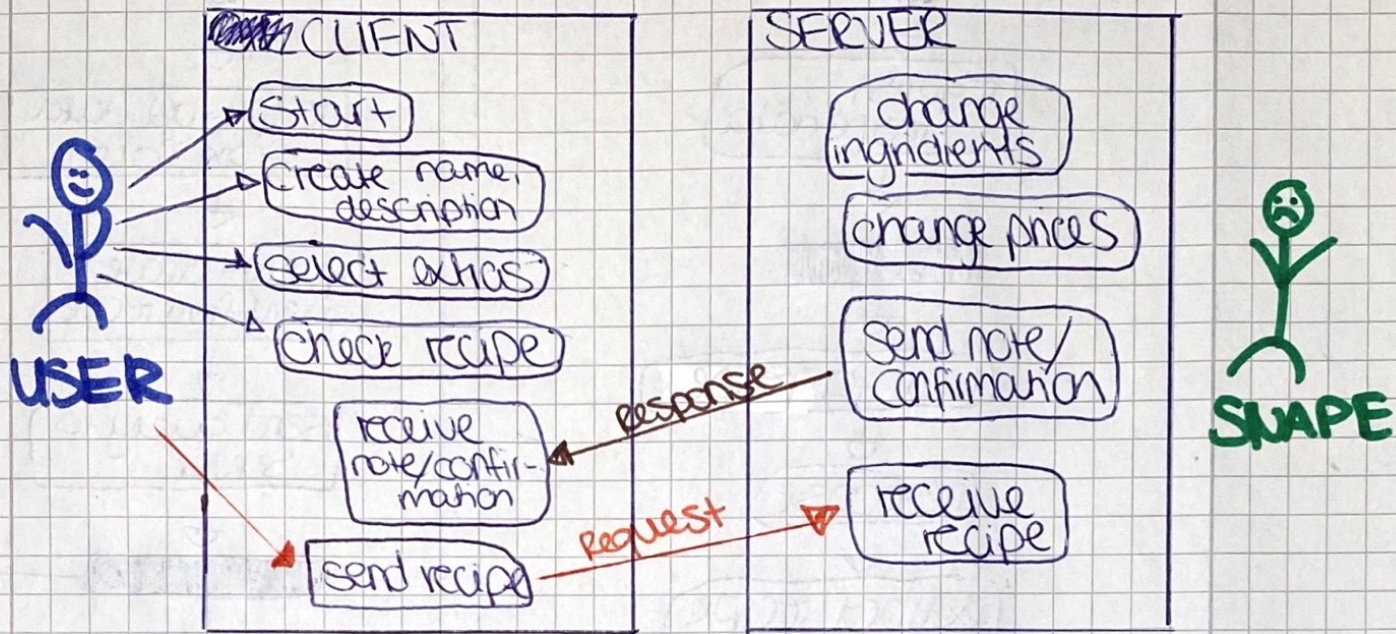 CLIENT
Start
Create name,
description
select extras
check recipe
receive
note/confir-
mation
send recipe
USER
Response
Request
SERVER
change
ingridients
change prices
send note/
confirmation
receive
recipe
SNAPE